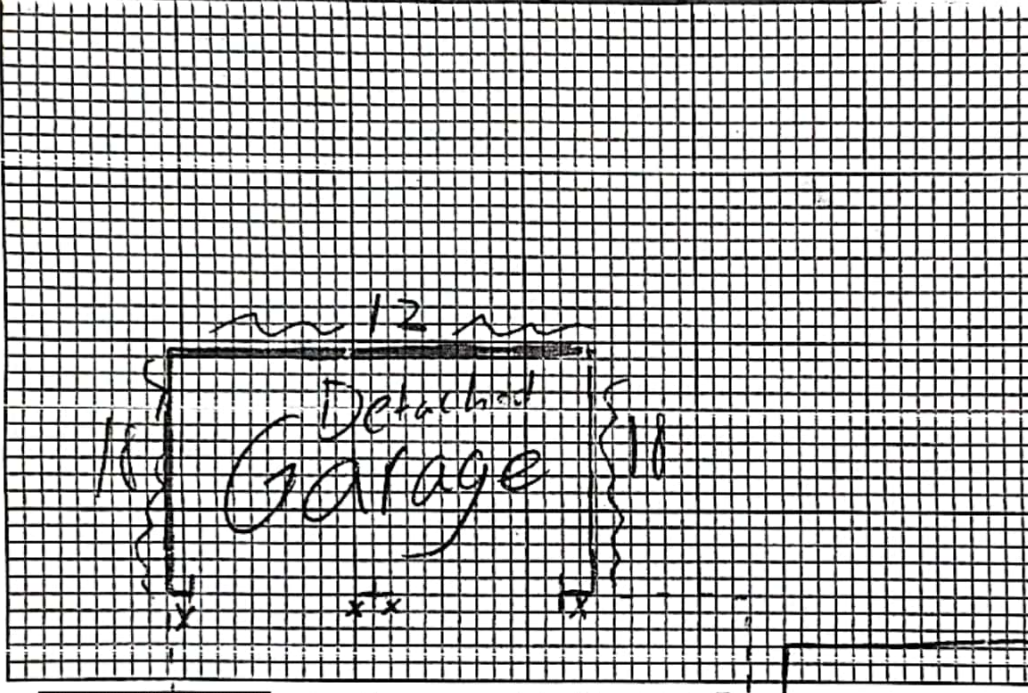 12
Detached
Garage
18
18
x
x x
x